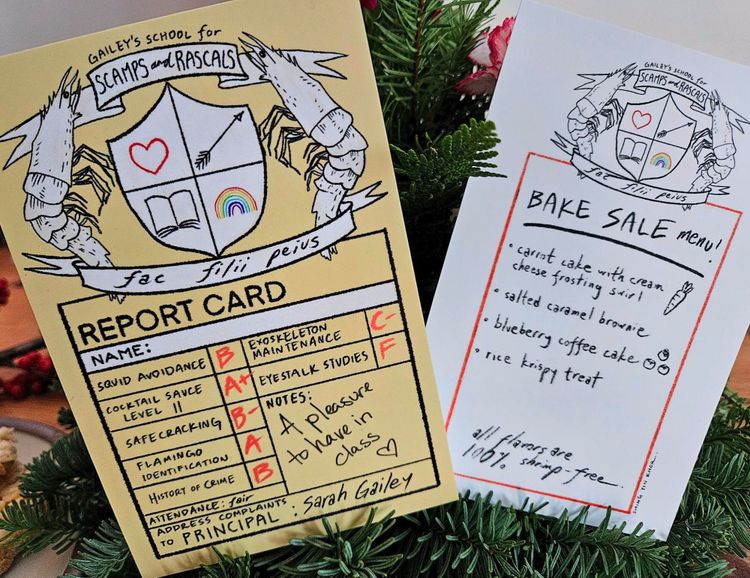 GAILEY'S SCHOOL for
SCAMPS and RASCALS
fac filii peius
REPORT CARD
NAME:
SQUID AVOIDANCE B
COCKTAIL SAUCE
LEVEL II A+
SAFECRACKING B-
FLAMINGO
IDENTIFICATION A
HISTORY OF CRIME B
EXOSKELETON
MAINTENANCE C-
EYESTALK STUDIES F
NOTES:
A pleasure
to have in
class
ATTENDANCE: fair
ADDRESS COMPLAINTS
TO PRINCIPAL: Sarah Gailey
GAILEY'S SCHOOL for
SCAMPS and RASCALS
fac filii peius
BAKE SALE menu!
• carrot cake with cream
cheese frosting swirl
• salted caramel brownie
• blueberry coffee cake
• rice krispy treat
all flavors are
100% shrimp-free